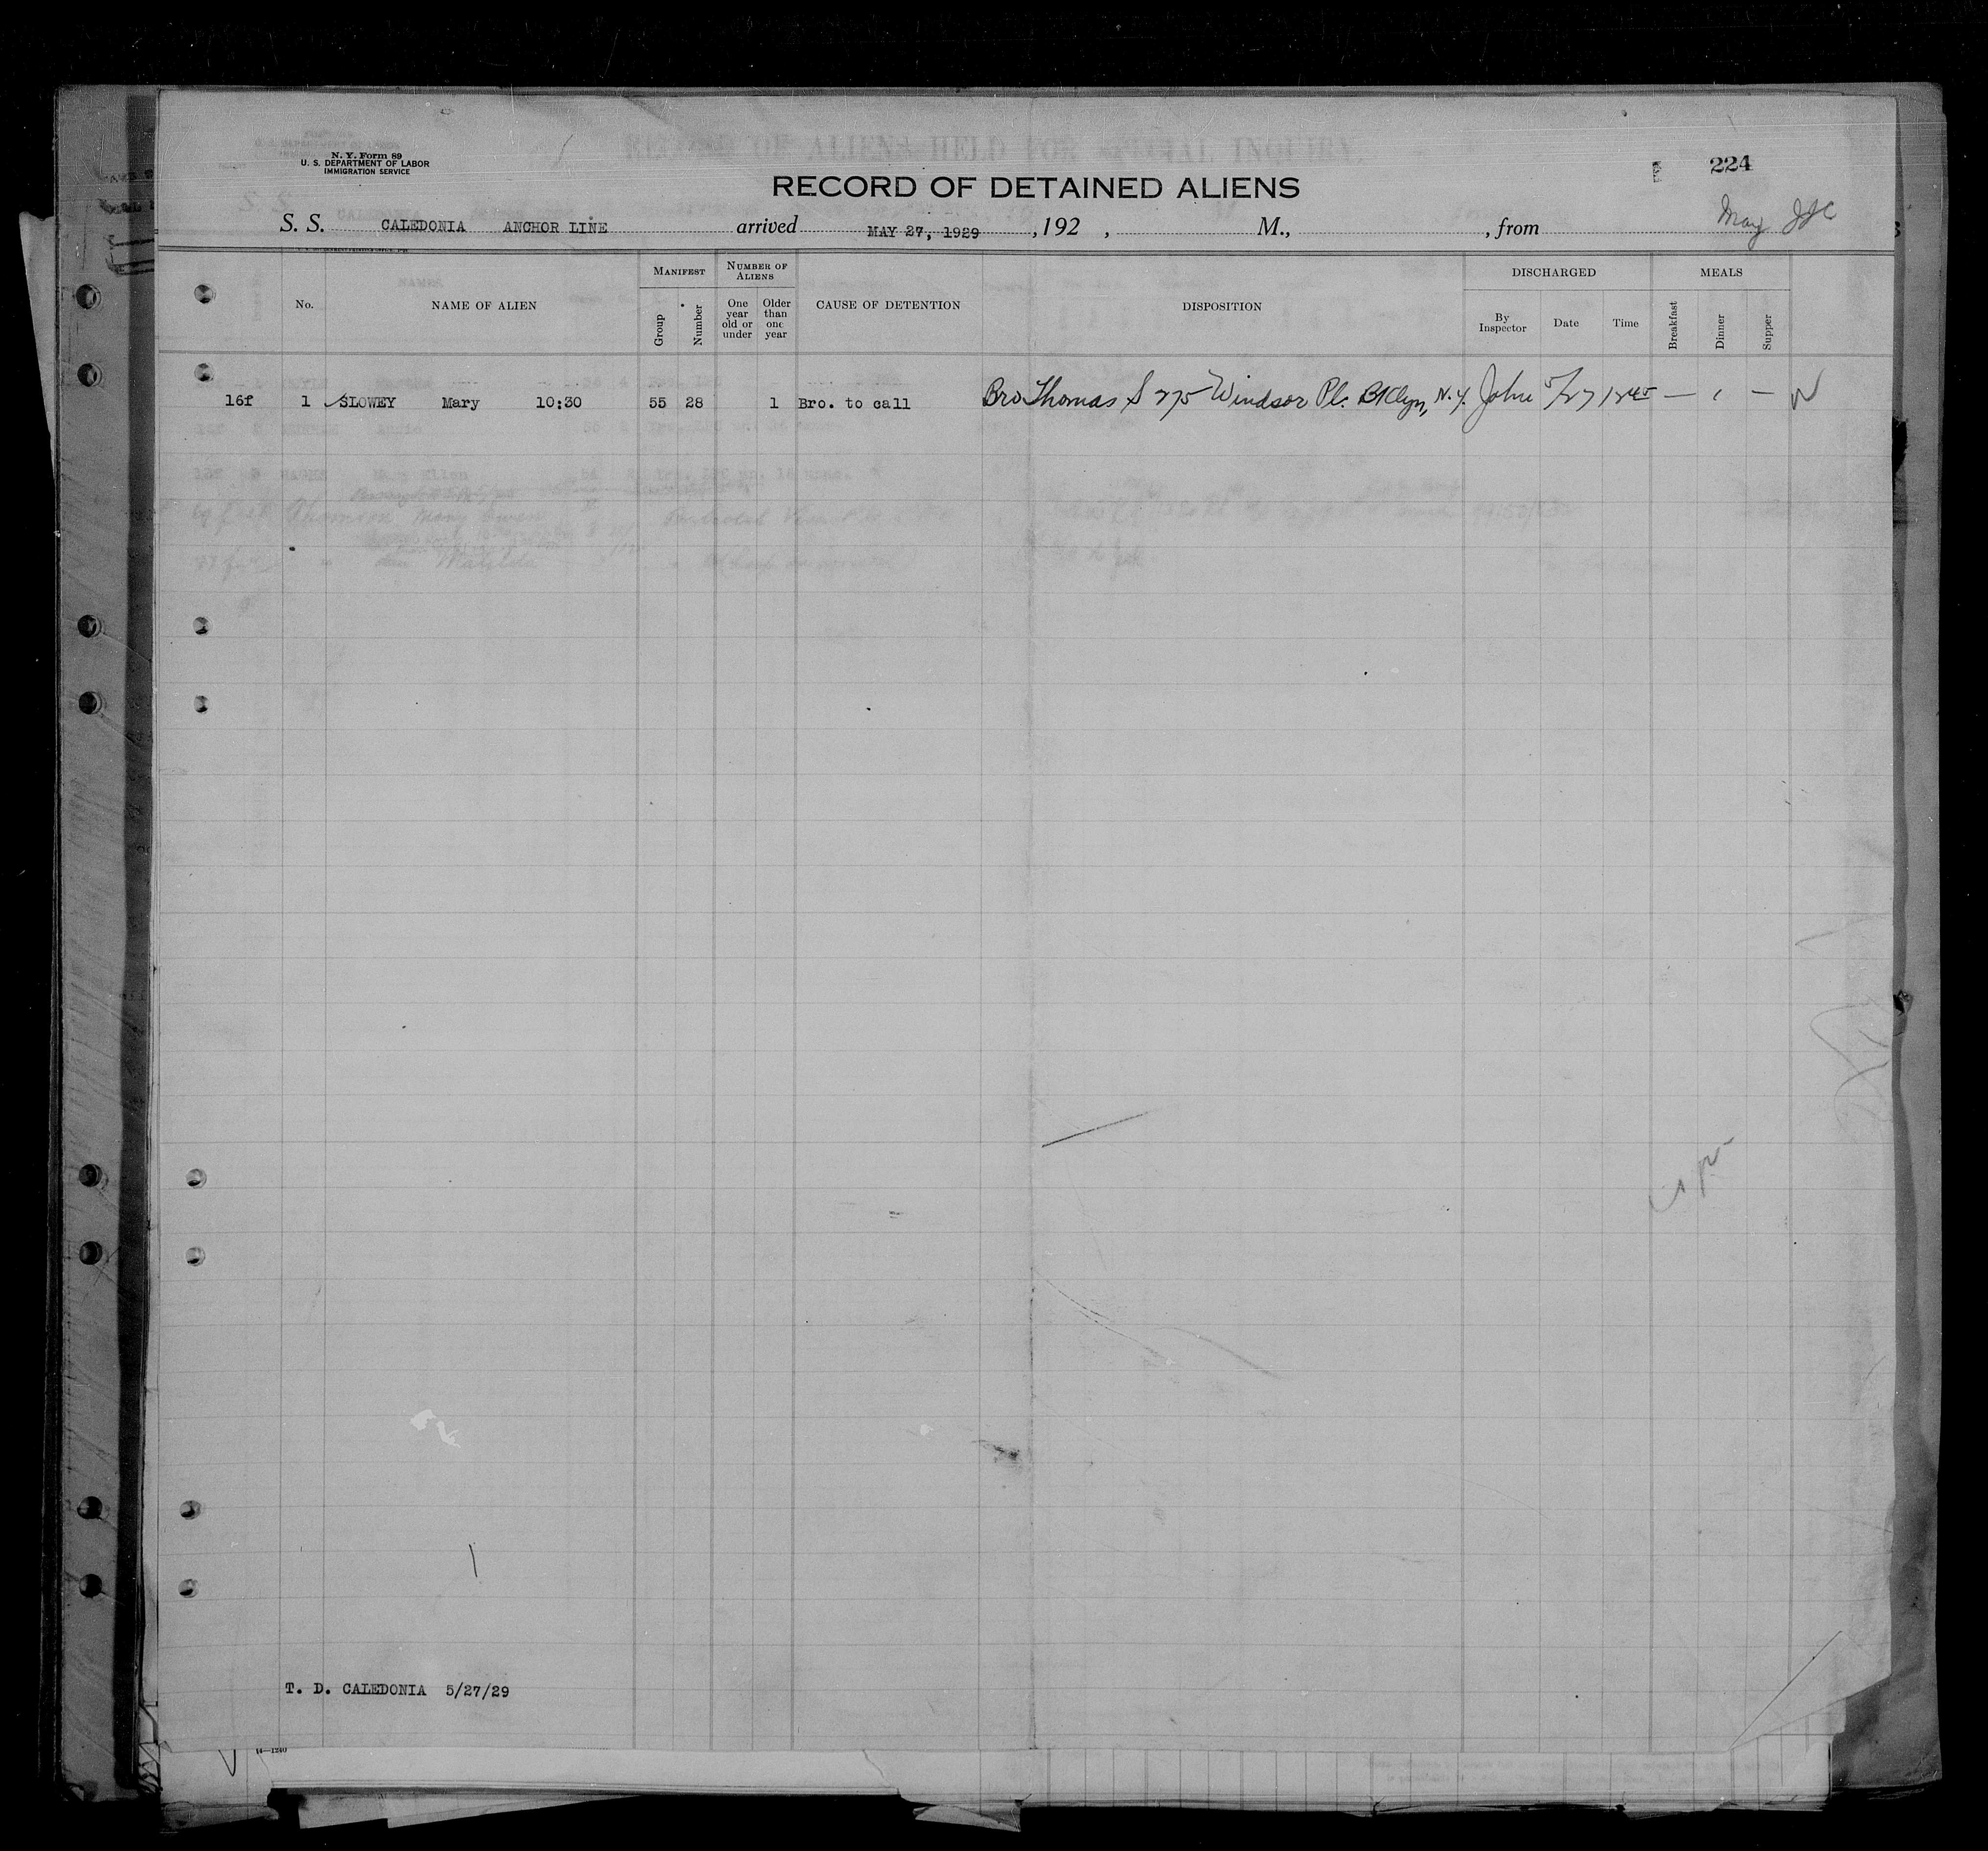 N. Y. Form 89
U. S. DEPARTMENT OF LABOR
IMMIGRATION SERVICE
224
RECORD OF DETAINED ALIENS
S. S. CALEDONIA ANCHOR LINE arrived MAY 27, 1929 , 192 , M., , from May
No. NAME OF ALIEN MANIFEST Group Number NUMBER OF ALIENS One year old or under Older than one year CAUSE OF DETENTION DISPOSITION DISCHARGED By Inspector Date Time MEALS Breakfast Dinner Supper
16f 1 SLOWEY Mary 10:30 55 28 1 Bro. to call Bro Thomas S 275 Windsor Pl. Bklyn, N.Y. John 5/27 1245 — 1 —
T. D. CALEDONIA 5/27/29
14—1240